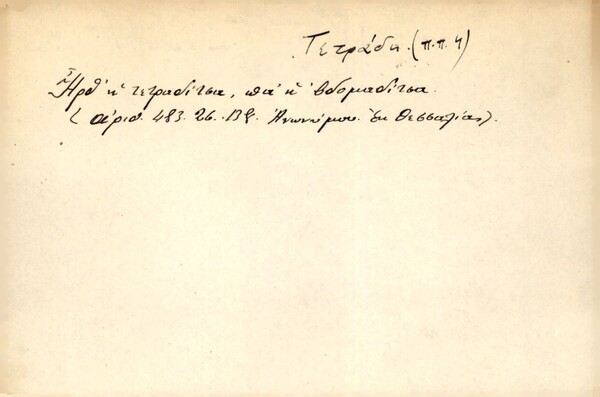 Τετράδη (π.π. 4)
Ἦρθ' ἡ τετραδίτσα, πά ἡ 'βδομαδίτσα.
(ἀριθ. 483. 26. Ἀνωνύμου. ἐκ Θεσσαλίας).